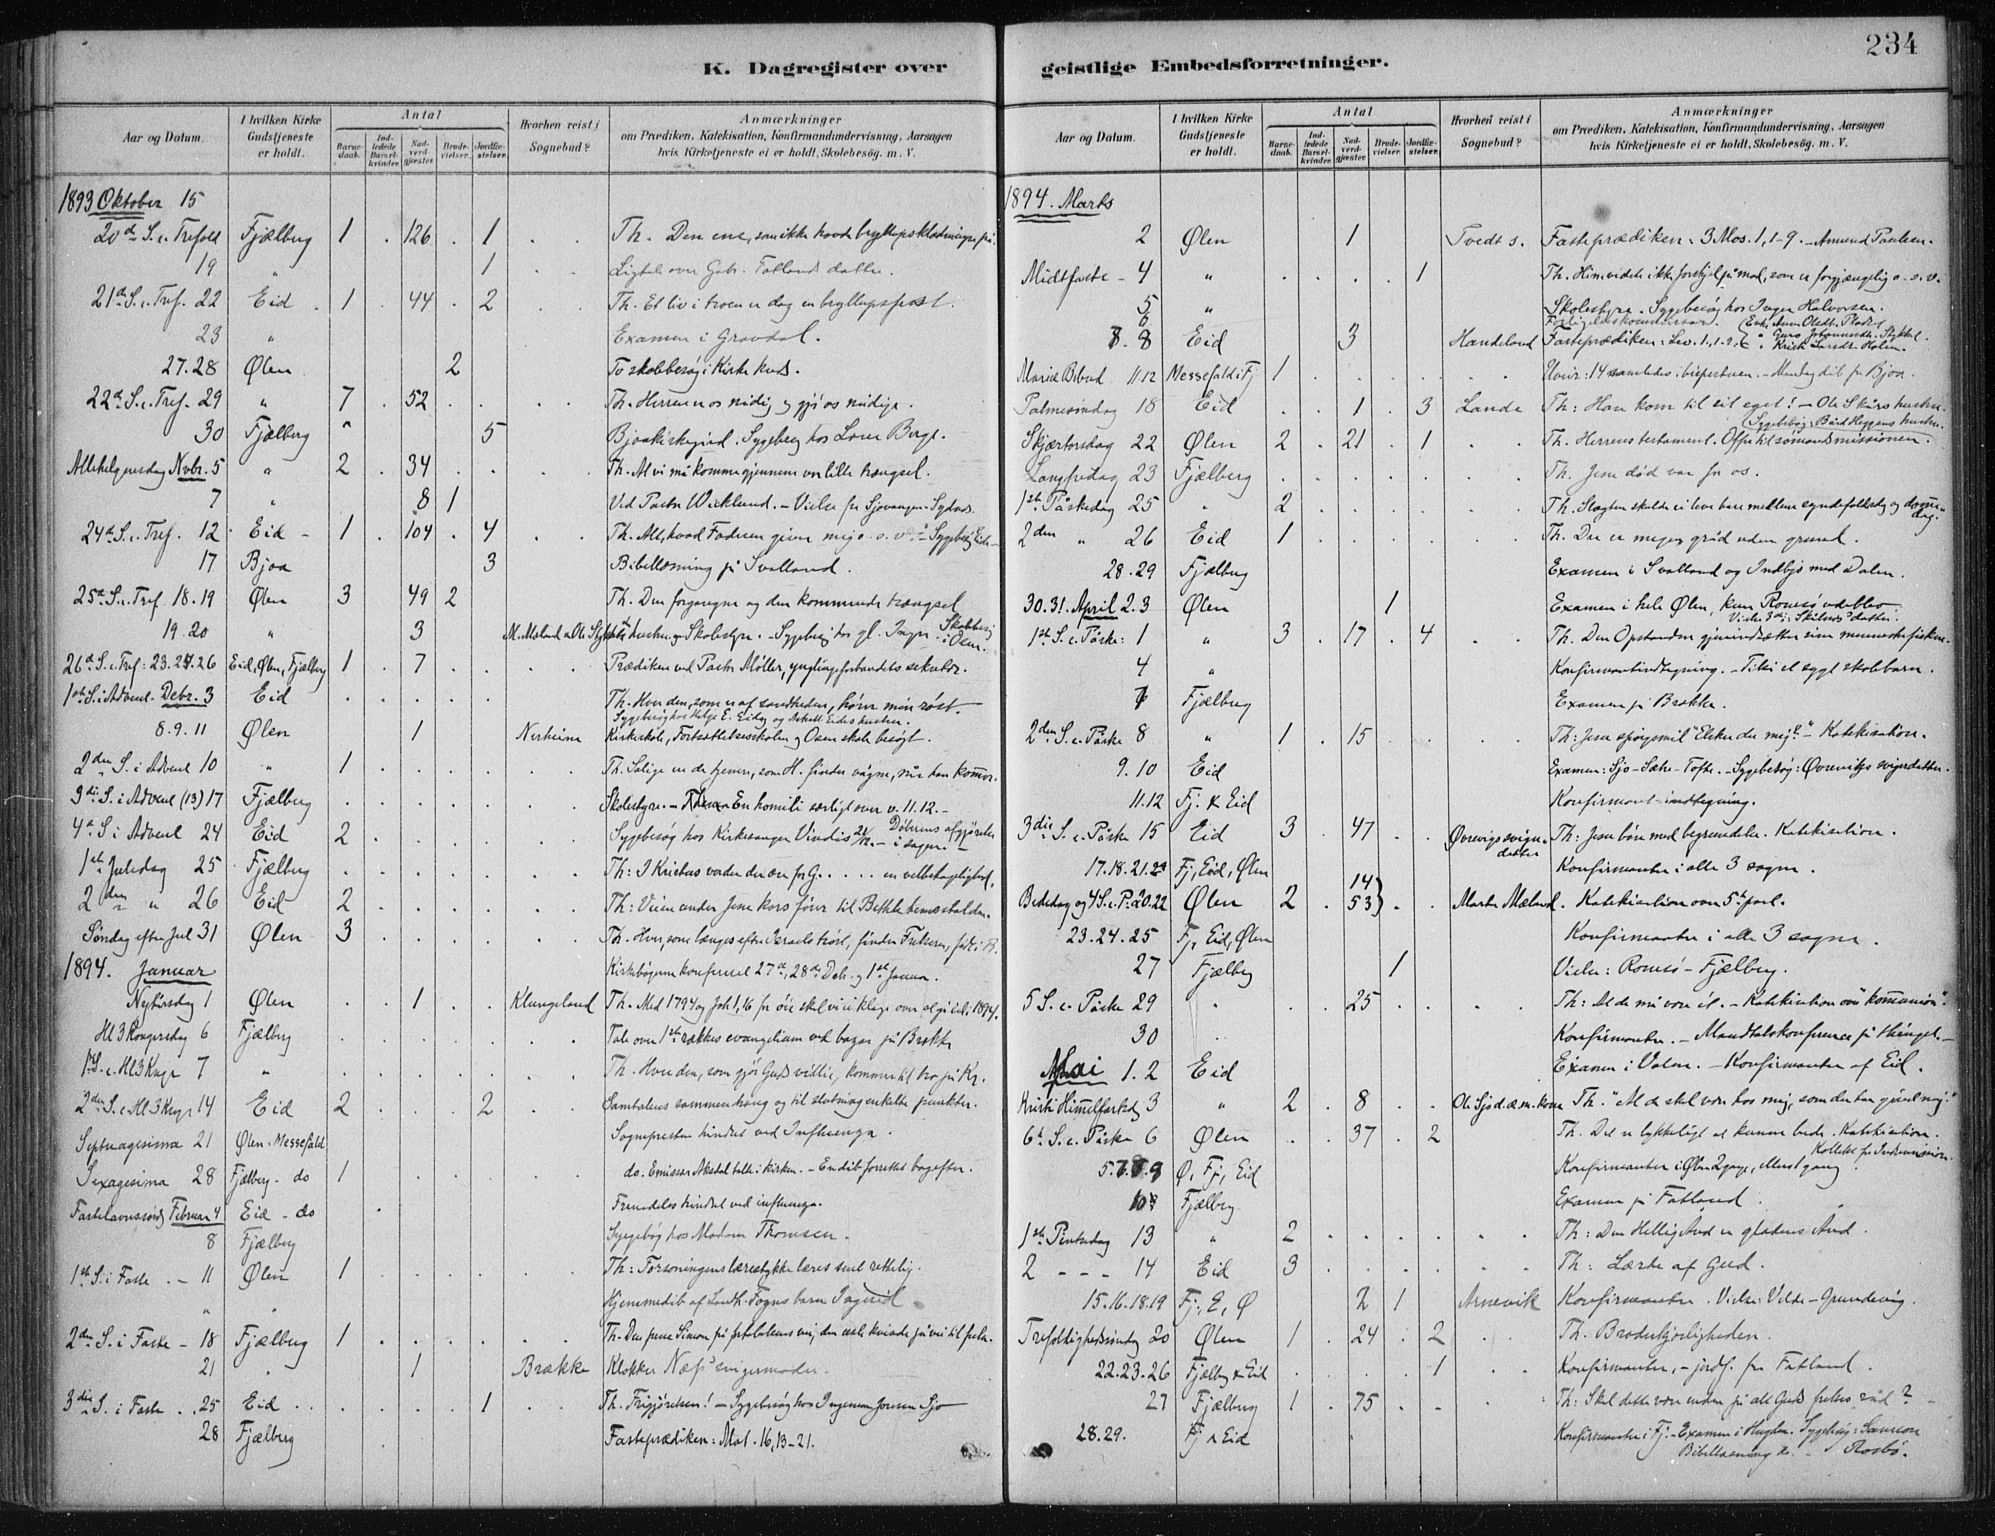 234
K. Dagregister over geistlige Embedsforretninger.
Aar og Datum. I hvilken Kirke Gudstjeneste er holdt. Antal Barnedaab. Indledede Barselkvinder. Nadverdgjæster. Brudevielser. Jordfæstelser. Hvorhen reist i Sognebud? Anmærkninger om Prædiken, Katekisation, Konfirmandundervisning, Aarsagen hvis Kirketjeneste ei er holdt, Skolebesøg. m. V.
1893 Oktober 15
20de S. e. Trefold Fjælberg 1 . 126 . 1 . . Th. Den ene, som ikke havde bryllupsklædningen på.
19 " 1 Ligtale over Gabr. Fatlands datter.
21de S. e. Tref. 22 Eid 1 . 44 . 2 Th. Et liv i troen er dog en bryllupsfest.
23 " Examen i Gravdal.
27. 28 Ølen 2 To skolebesøg i Kirke kreds.
22de S. e. Tref. 29 " 7 . 52 Th. Herren er os nådig og gjø os nådige.
30 Fjælberg 5 Bjoakirkegård. Sygebesøg hos Berge.
Allehelgensdag Novbr. 5 " 2 . 34 Th. At vi må komme gjennem vor lille trængsel.
7 " 8 1 Ved Pastor Wicklund. - Vielse fr Sjovangen - Sydnes.
24de S. e. Tref. 12 Eid 1 . 104 . 4 Th. Alt, hvad Faderen giver mig o. s. v. - Sygebesøg
17 Bjoa 3 Bibellæsning på Svolland.
25de S. e. Tref. 18. 19 Ølen 3 49 2 Th. Den forgangne og den kommende trængsel
19. 20 " 3 M. Mæland Skolestyre. - Sygebesøg hos gl. Inger Skolebesøg i Ølen.
26de S. e. Tref: 23. 24. 26 Eid, Ølen, Fjælberg 1 . 7 Prædiken ved Pastor Møller, ynglingeforbundets sekretær.
1ste S. i Advent. Debr. 3 Eid Th. Hver den, som er af sandheden, hører min røst.
8. 9. 11 Ølen 1 Nerheim Kirkeskole, Fortsættelsesskolen og Ølens skole besøgt.
2den S. i Advent 10 " 1 Th. Salige er de tjenere, som H. finder vågne, når han kommer.
3die S. i Advent (13) 17 Fjælberg Skolestyre. - En homili særligt over v. 11. 12. -
4de S i Advent 24 Eid 2 Sygebesøg hos Kirkesanger Vindis Døberens afgjørelse i sagen.
1ste Juledag 25 Fjælberg Th: I Kristus vorder der ære for G . . . . . en velbehagelighed.
2den " 26 Eid 2 Th: Veien under Jesu kors fører til Bethlehemsstalden.
Søndag efter Jul 31 Ølen 3 Th. Hver, som længes efter Israels trøst, finder Frelseren, født i B.
1894. Januar Kirkebøgerne konfereret 27de, 28de Deb. og 1ste Januar.
Nytårsdag 1 Ølen 1 Klungeland Th. Med 1794 og Joh 1,16 for øie skal vi ikke klage over at gå ud i 1894.
Hl 3 Kongersdag 6 Fjælberg Tale over 1ste rækkes evangelium ved bazar på Brække
1S. e. Hl 3 Kngr 7 " Th. Hver den, som gjør Guds villie, kommer til tro på Kr.
2den S. e Hl 3 Kngr 14 Eid 2 2 Samtalens sammenhæng og til slutning enkelte punkter.
Septuagesima 21 Ølen - Messefald Sognepresten hindret ved Influenza.
Sexagesima 28 Fjælberg - do 1 do. Emissær Aksdal talte i kirken. - En dåb forrettet bagefter.
Fastelavnssønd Februar 4 Eid - do Fremdeles hindret ved influenza.
8 Fjælberg Sygebesøg hos Madam Thomsen.
1ste S. i Faste - 11 Ølen 1 Th: Forsoningens lærestykke læres snart rettelig.
" " Hjemmedåb af Landh. Fogns barn Ingrid
2den S. i Faste - 18 Fjælberg 1 Th. Den pene Simon på fortabelsens vei, den usle kvinde på vei til frelse.
21 " 1 Brække Klokker Næs' svigermoder.
3die S. i Faste 25 Eid 1 Th. Frigjørelsen! - Sygebesøg hos Ingemun Jonsen Sjo
28 Fjælberg Fasteprædiken: Mat. 16, 13-21.
Aar og Datum. I hvilken Kirke Gudstjeneste er holdt. Antal Barnedaab. Indledede Barselkvinder. Nadverdgjæster. Brudevielser. Jordfæstelser. Hvorhen reist i Sognebud? Anmærkninger om Prædiken, Katekisation, Konfirmandundervisning, Aarsagen hvis Kirketjeneste ei er holdt, Skolebesøg. m. V.
1894. Marts
2 Ølen 1 Tvedt s. Fasteprædiken: 3 Mos. 1, 1-9. - Amund Paulsen.
Midtfaste - 4 " 1 Th. Hin vidste ikke forskjel på mad, som er forgjængelig o. s. v.
5 " Skolestyre. Sygebesøg hos Inger Halvorsen.
6 Forligelseskommissær.
8 Eid 3 Handeland Fasteprædiken: Lev. 1, 1-2.
Mariæ Bebud 11. 12 Messefald i Fj 1 Uveir: 14 samledes i bispestuen. - Mandag dåb fr Bjoa.
Palmesøndag 18 Eid 1 . 3 Lande Th: Han kom til sit eget! - Ole Skårs hustru. Sygebesøg: Bård Heggens hustru.
Skjærtorsdag 22 Ølen 2 . 21 . 1 Th. Herrens testament. Offer til sømandsmissionen.
Langfredag 23 Fjælberg Th. Jesu død var for os.
1ste Påskedag 25 " 2 Th. Slægten skulde ei leve bare mellem syndefaldsdag og domme- dag.
2den " 26 Eid 1 Th. Der er megen gråd uden grund.
28. 29 Fjælberg Examen i Svolland og Indbjo med Dalen.
30. 31. April 2. 3 Ølen 1 Examen i hele Ølen, kun Romsø udeblev
1ste S. e. Påske: 1 " 3 . 17 . 4 Th. Den Opstandne gjenindsætter sine menneskefiskere.
4 " Konfirmantindtegning. - Tilsé et sygt skolebarn.
6 Fjælberg Examen på Brække.
2den S. e. Påske 8 " 1 . 15 Th: Jesu spørgsmål "Elsker du mig?" - Katekisation.
9. 10 Eid Examen: Sjo - Sæte - Tofte. - Sygebesøg: Øvrevigs svigerdatter.
11. 12 Fj. & Eid Konfirmant-indtegning.
3die S. e. Påske 15 Eid 3 47 Øvrevigs svigerdatter Th: Jesu bøn med begrundelse. Katekisation.
17. 18. 21. 23 Fj, Eid, Ølen Konfirmanter i alle 3 sogne.
Bededag og 4 S. e. P: 20. 22 Ølen 2 14 53 Marta Mæland. Katekisation over 5te parl.
23. 24. 25 Fj, Eid, Ølen Konfirmanter i alle 3 sogne.
27 Fjælberg 1 Vielse: Romsø - Fjælberg.
5 S. e Påske 29 25 Th: At de må være ét. - Katekisation over "kommunion".
30 Konfirmanter. - Mandtalskonference på thinget. -
Mai 1. 2 Eid Examen i Valen. - Konfirmanter af Eid.
Kristi Himmelfartsdag 3 " 2 . 8 Ole Sjo d. æ. m. kone Th. "At de skal være hos mig, som du har givet mig."
6te S. e. Påske 6 Ølen 37 . 2 Th. Det er lykkeligt at kunne bede. Katekisation. Kollekt for Indremission.
5. 7. 8. 9 Ø. Fj, Eid Konfirmanter i Ølen 2 gange, ellers 1 gang
10 Fjælberg Examen på Fatland.
1ste Pintsedag 13 " 2 Th: Den Hellig Ånd er glædens Ånd.
2 - - - 14 Eid 3 Th: Lærte af Gud.
15. 16. 18. 19 Fj., E, Ø 2 1 Arnevik Konfirmanter. Vielse: Velde - Grundevåg.
Trefoldighedssøndag 20 Ølen 1 24 . 2 Th. Broderkjærligheden.
22. 23. 26 Fjælbg & Eid 1 Konfirmanter, - jordf. fra Fatland.
27 Fjælberg 1 75 Th: Skal dette være enden på alt Guds frelses råd?
28. 29. Fj & Eid Konfirmanter i Fj. - Examen i Huglen. Sygebesøg: Samson Rosbø.
Bibellæsning do.